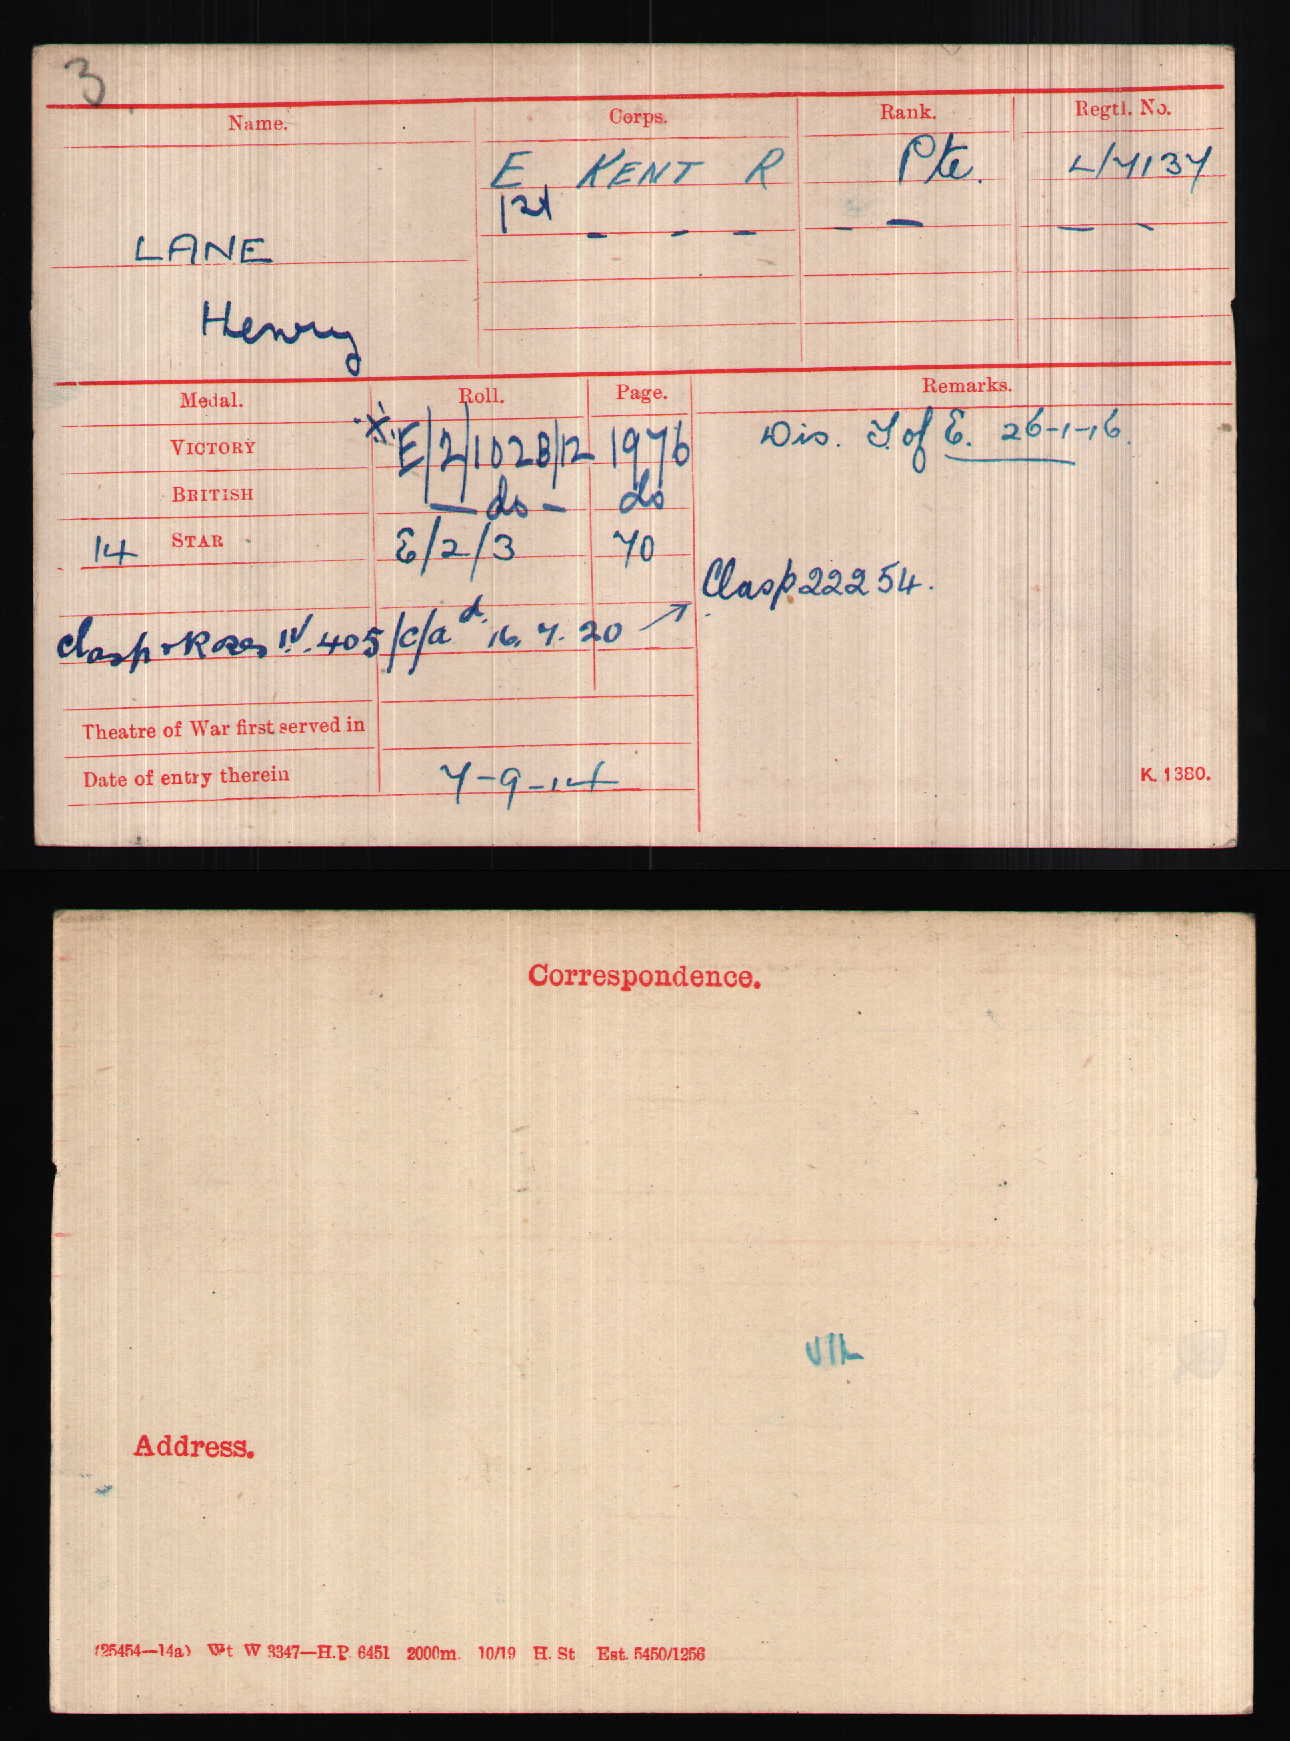 3
Name. Corps. Rank. Regtl. No.
E KENT R Pte. L/7137
1st - - - - — - -
LANE
Henry
Medal. Roll. Page. Remarks.
VICTORY E/2/102B/12 1976 Dis. T. of E. 26-1-16.
BRITISH — do — do
14 STAR E/2/3 70
Clasp 22254.
Clasp & Roses IV. 405/c/a d. 16.7.20
Theatre of War first served in
Date of entry therein 7-9-14
K. 1380.
Correspondence.
Address.
(25454—14a) Wt W 3347—H.P. 6451 2000m. 10/19 H. St Est. 5450/1256